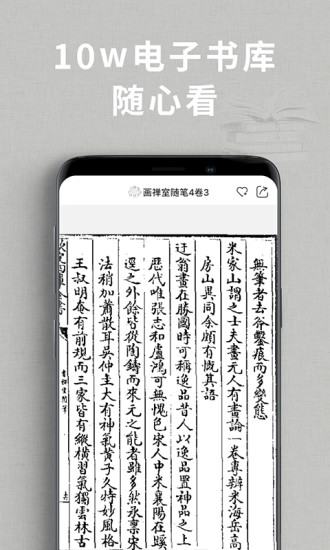 10w电子书库
随心看
画禅室随笔4卷3
無筆者去斧鑿痕而多變態
米家山謂之士夫畫元人有畵論一卷專辨米海岳高
房山異同余頗有慨其語
迂翁畫在勝國時可稱逸品昔人以逸品置神品之上
歷代唯張志和盧鴻可無愧色宋人中米襄陽在蹊
逕之外餘皆從陶鑄而來元之能者雖多然承稟宋
法稍加蕭散耳吳仲圭大有神氣黃子久特妙風格
王叔明奄有前規而三家皆有縱橫習氣獨雲林古